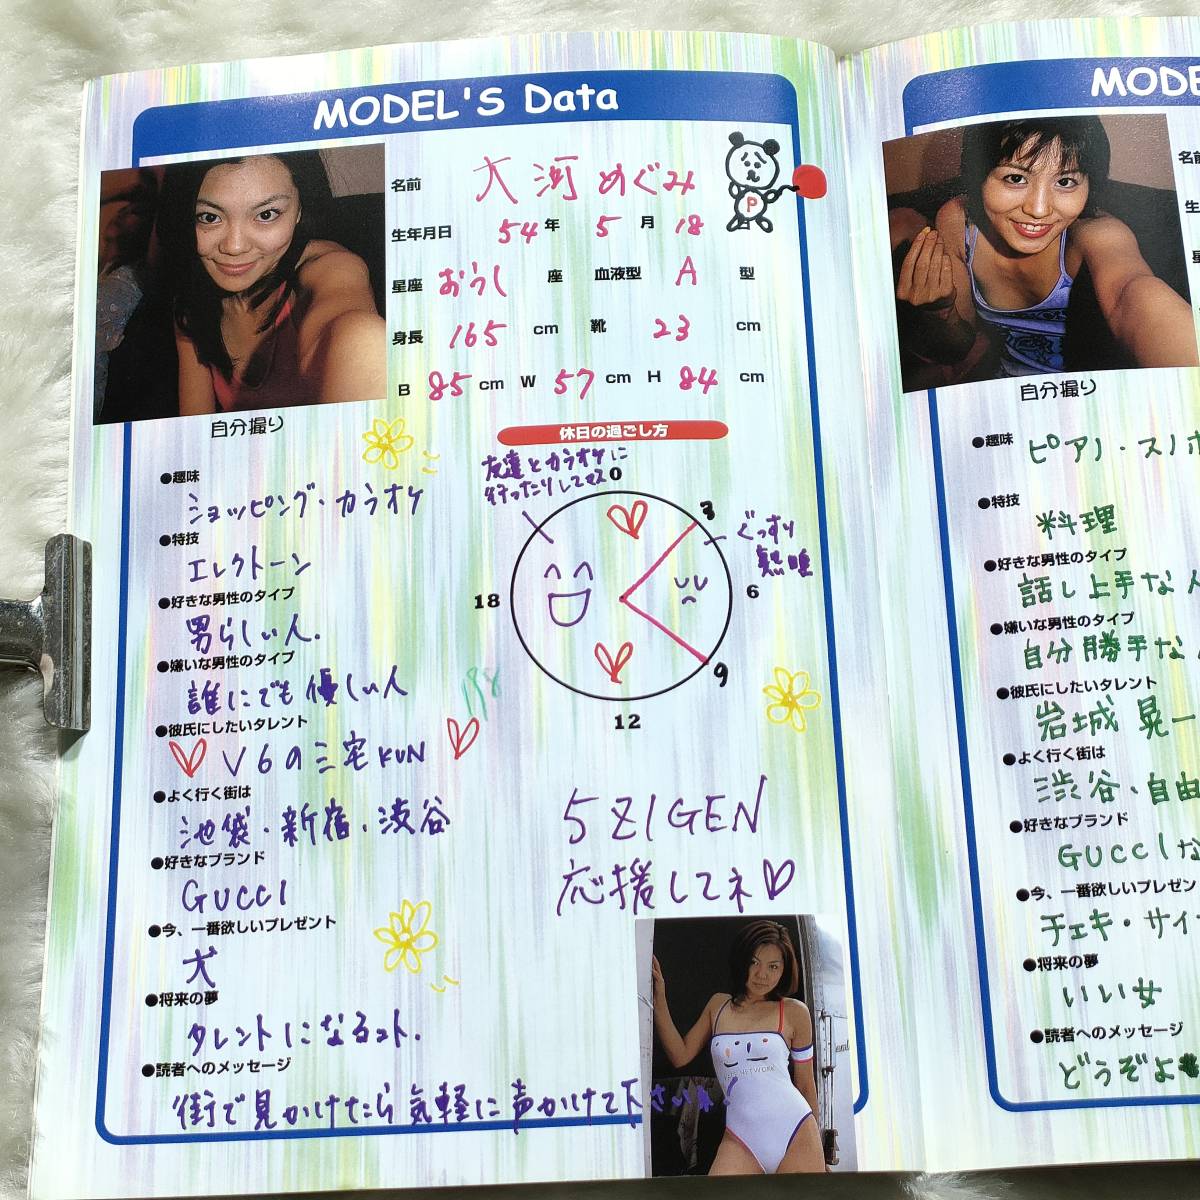 MODEL'S Data
名前 大河めぐみ
P
生年月日 54年 5月 18
星座 おうし 座 血液型 A 型
身長 165 cm 靴 23 cm
B 85 cm W 57 cm H 84 cm
自分撮り
休日の過ごし方
友達とカラオケに
行ったりしてマス
0
3
ぐっすり
熟睡
6
9
12
18
●趣味
ショッピング・カラオケ
●特技
エレクトーン
●好きな男性のタイプ
男らしい人.
●嫌いな男性のタイプ
誰にでも優しい人
●彼氏にしたいタレント
V6の三宅KUN
●よく行く街は
池袋・新宿・渋谷
●好きなブランド
GUCCI
●今、一番欲しいプレゼント
犬
●将来の夢
タレントになるコト.
●読者へのメッセージ
街で見かけたら気軽に声かけて下さいね!
5ZIGEN
応援してネ
NETWORK
MODE
名前
生
星
自分撮り
●趣味
ピアノ・スノボ
●特技
料理
●好きな男性のタイプ
話し上手な人
●嫌いな男性のタイプ
自分勝手な人
●彼氏にしたいタレント
岩城晃一
●よく行く街は
渋谷・自由
●好きなブランド
GUCCIな
●今、一番欲しいプレゼン
チェキ・サイ
●将来の夢
いい女
●読者へのメッセージ
どうぞよ